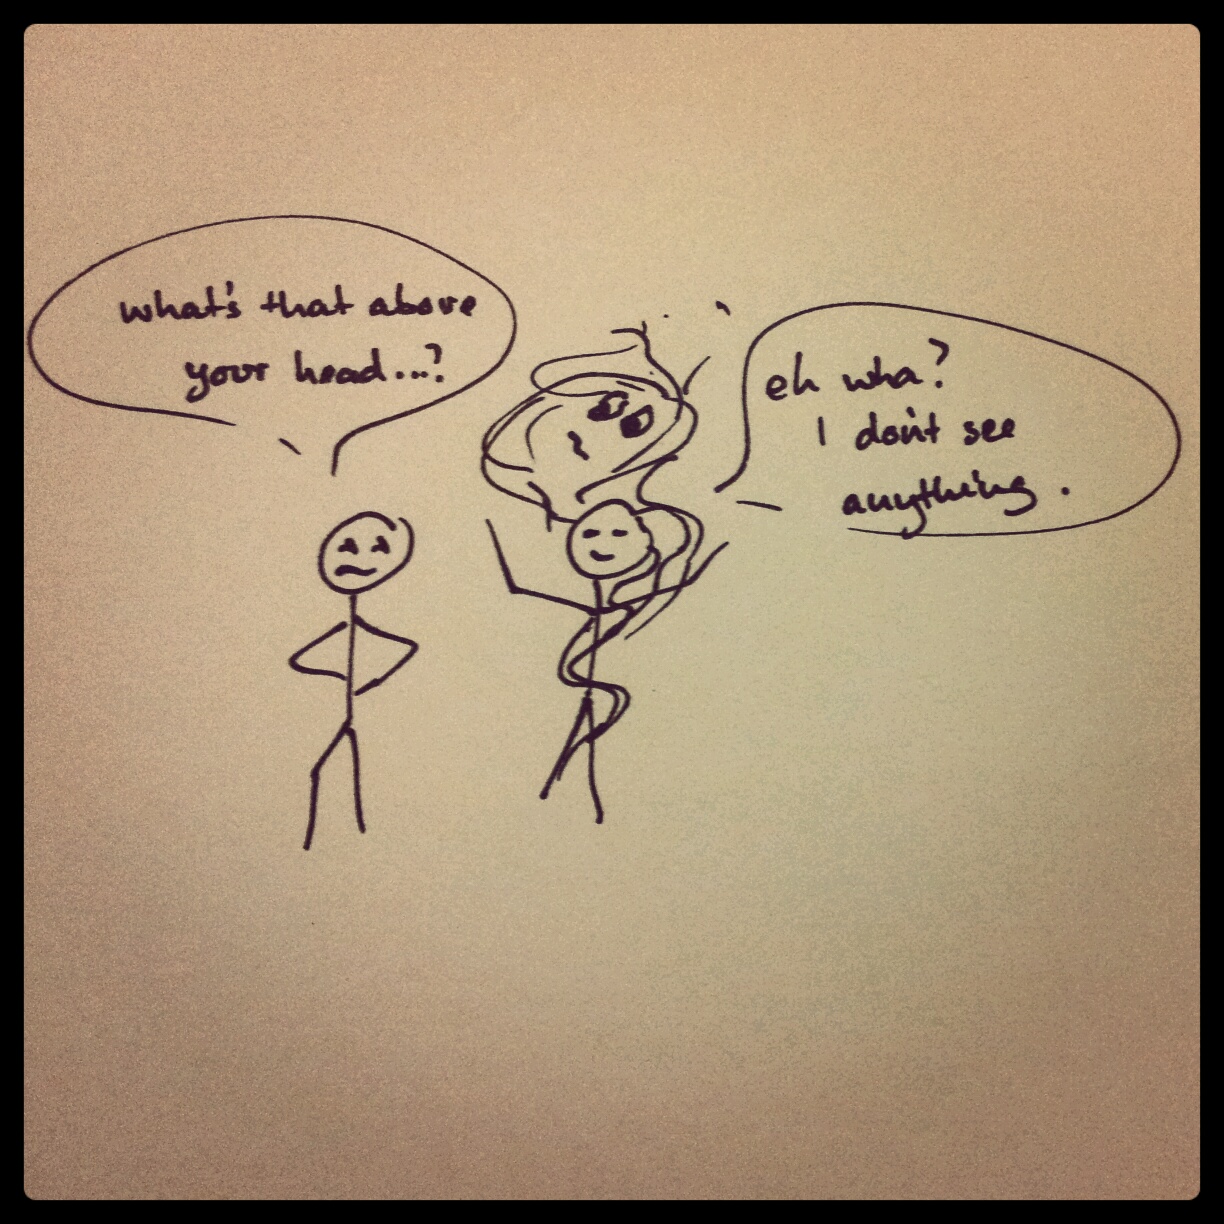 what's that above
your head...?
eh wha?
I don't see
anything.